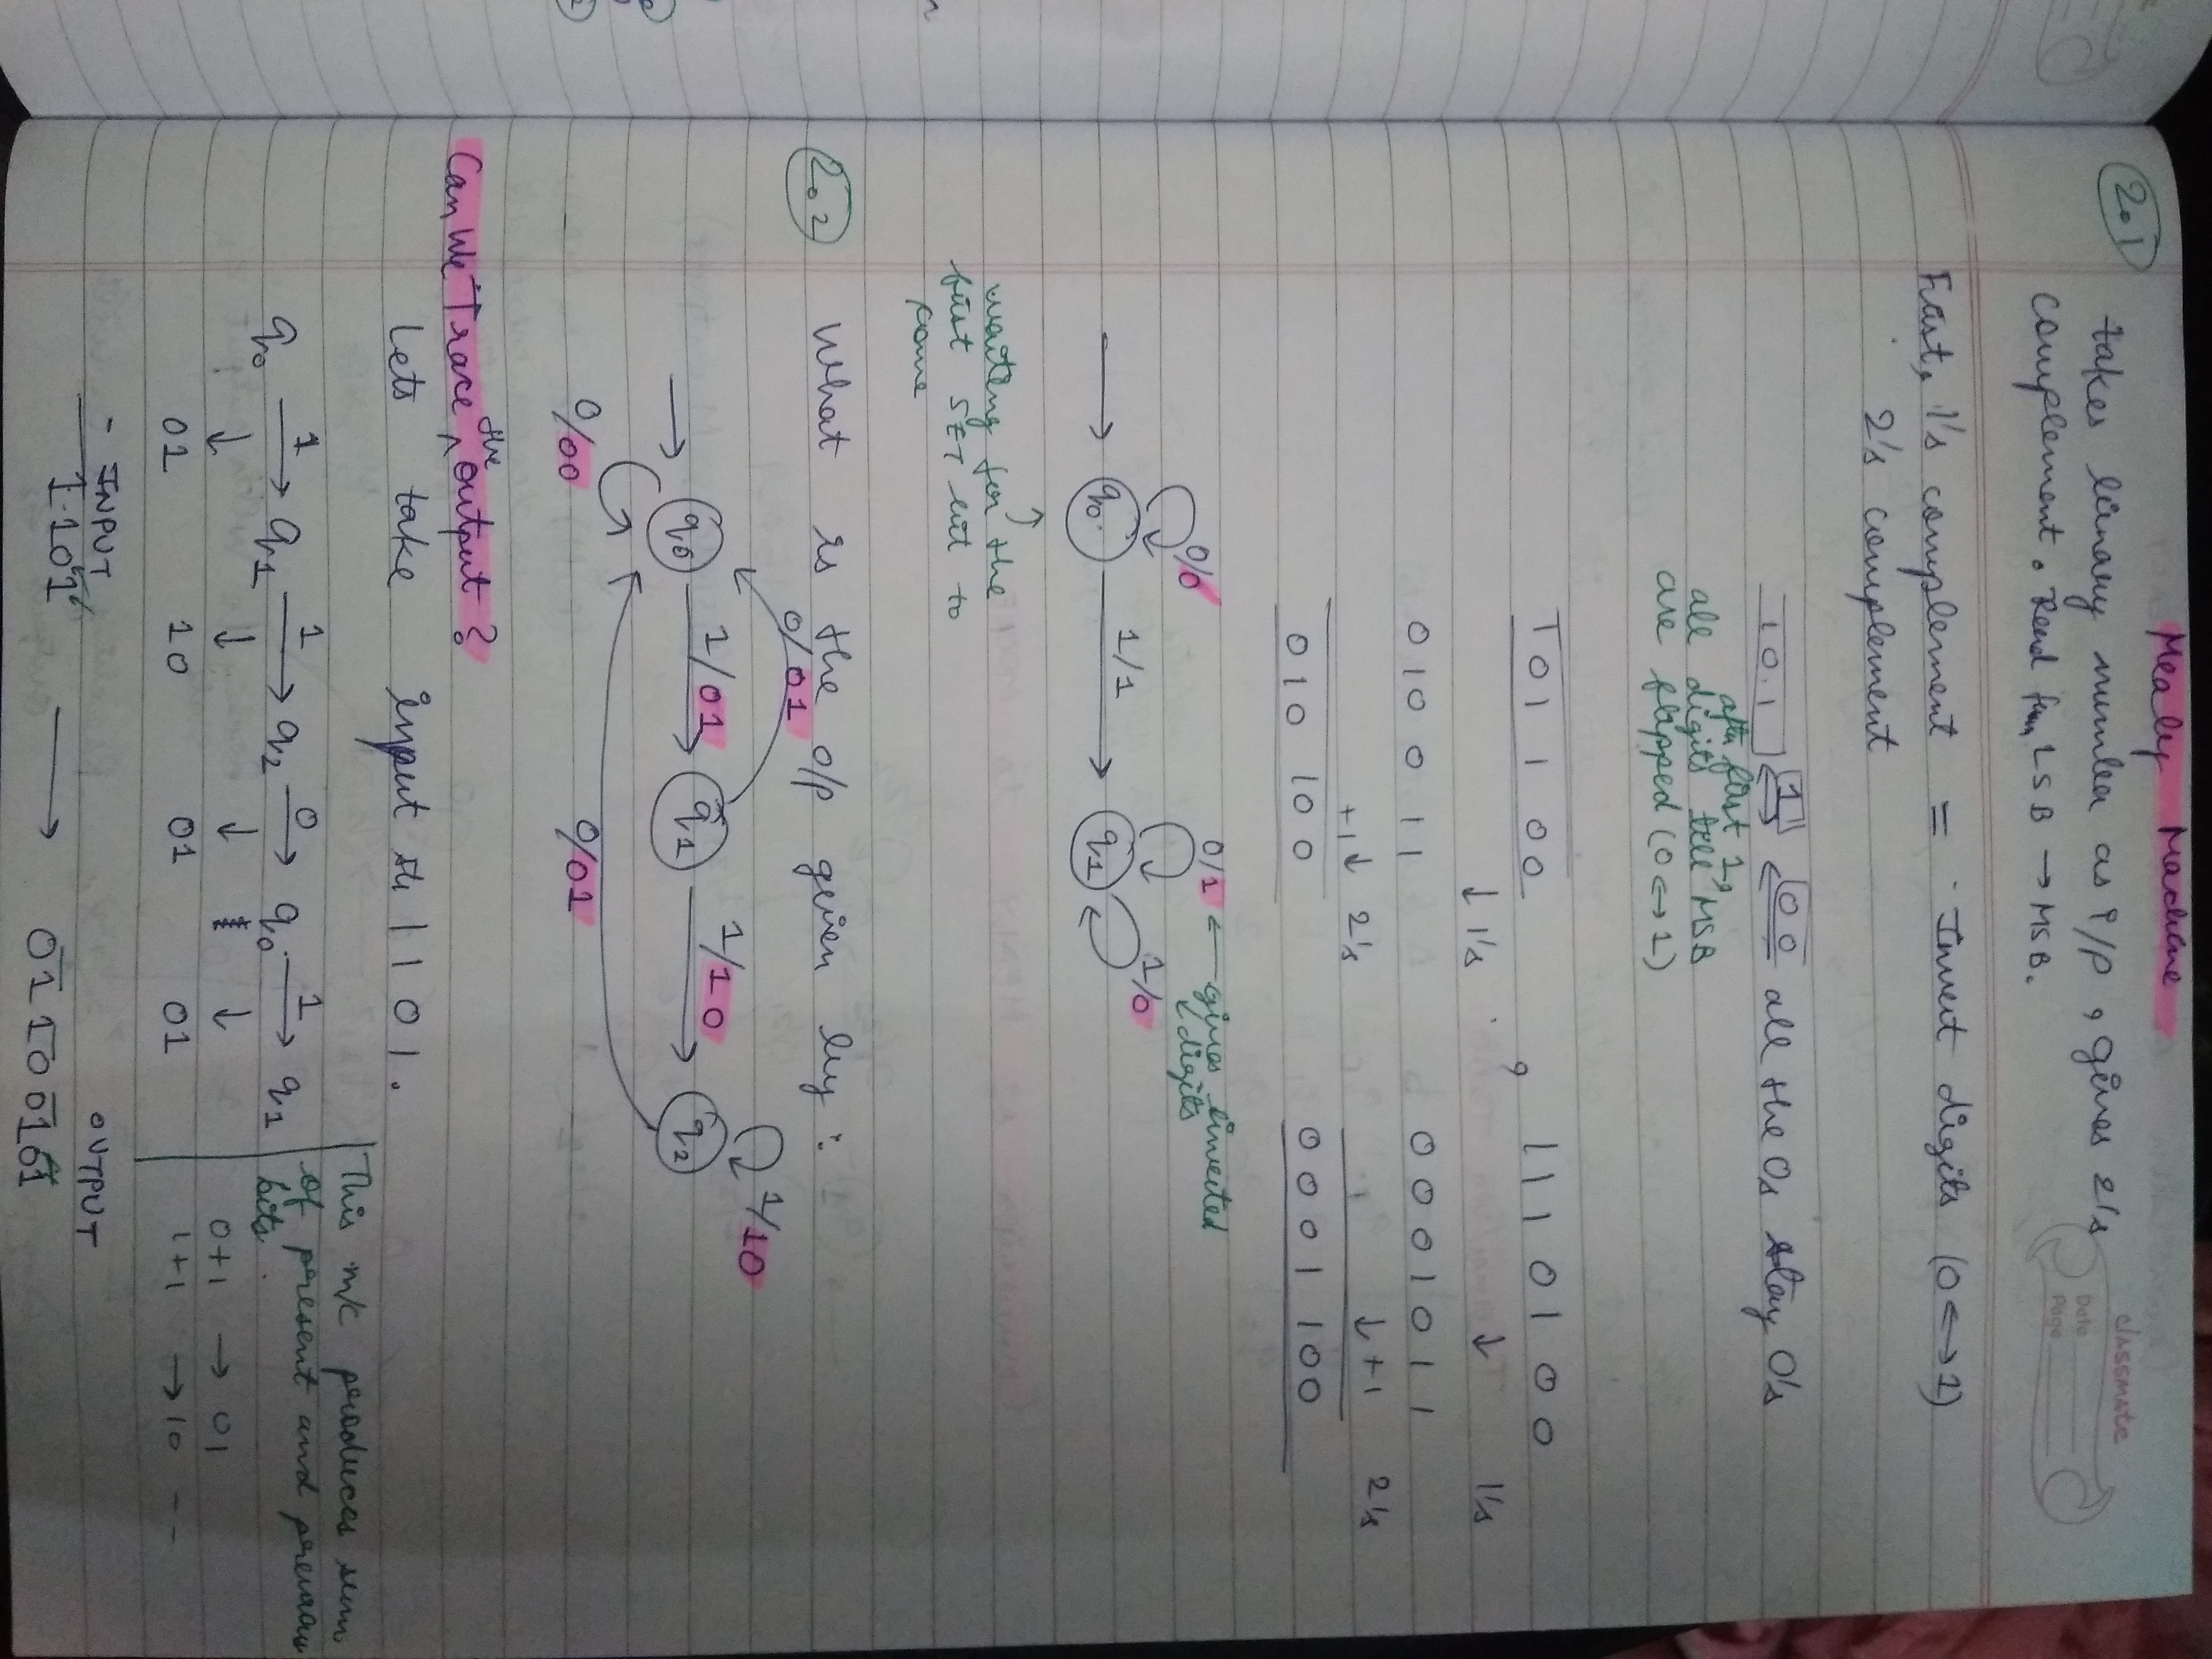 Mealy Machine
classmate
Date
Page
2.1 takes binary number as i/p, gives 2's
complement. Read from LSB → MSB.
First, 1's complement = Invert digits (0↔1)
2's complement
101 1 00 all the 0s stay 0's
after first 1,
all digits till MSB
are flapped (0↔1)
101 1 00 , 11101 00
↓ 1's ↓ 1's
010 0 11 0001011
+1↓ 2's ↓+1 2's
010 100 0001100
0/0 0/1 ← gives inverted digits
→ q0 1/1 → q1 1/0
↑
waiting for the
first SET bit to
come
2.2 What is the o/p given by :
0/01 1/10
→ q0 1/01 → q1 1/10 → q2
0/00 0/01
Can We Trace the output?
Lets take input th 1101.
q0 1→ q1 1→ q2 0→ q0 1→ q1
↓ ↓ ↓ ↓
01 10 01 01
This m/c produces sum
of present and previous
bits.
0+1 → 01
1+1 → 10 --
- INPUT OUTPUT
1101 → 01100101